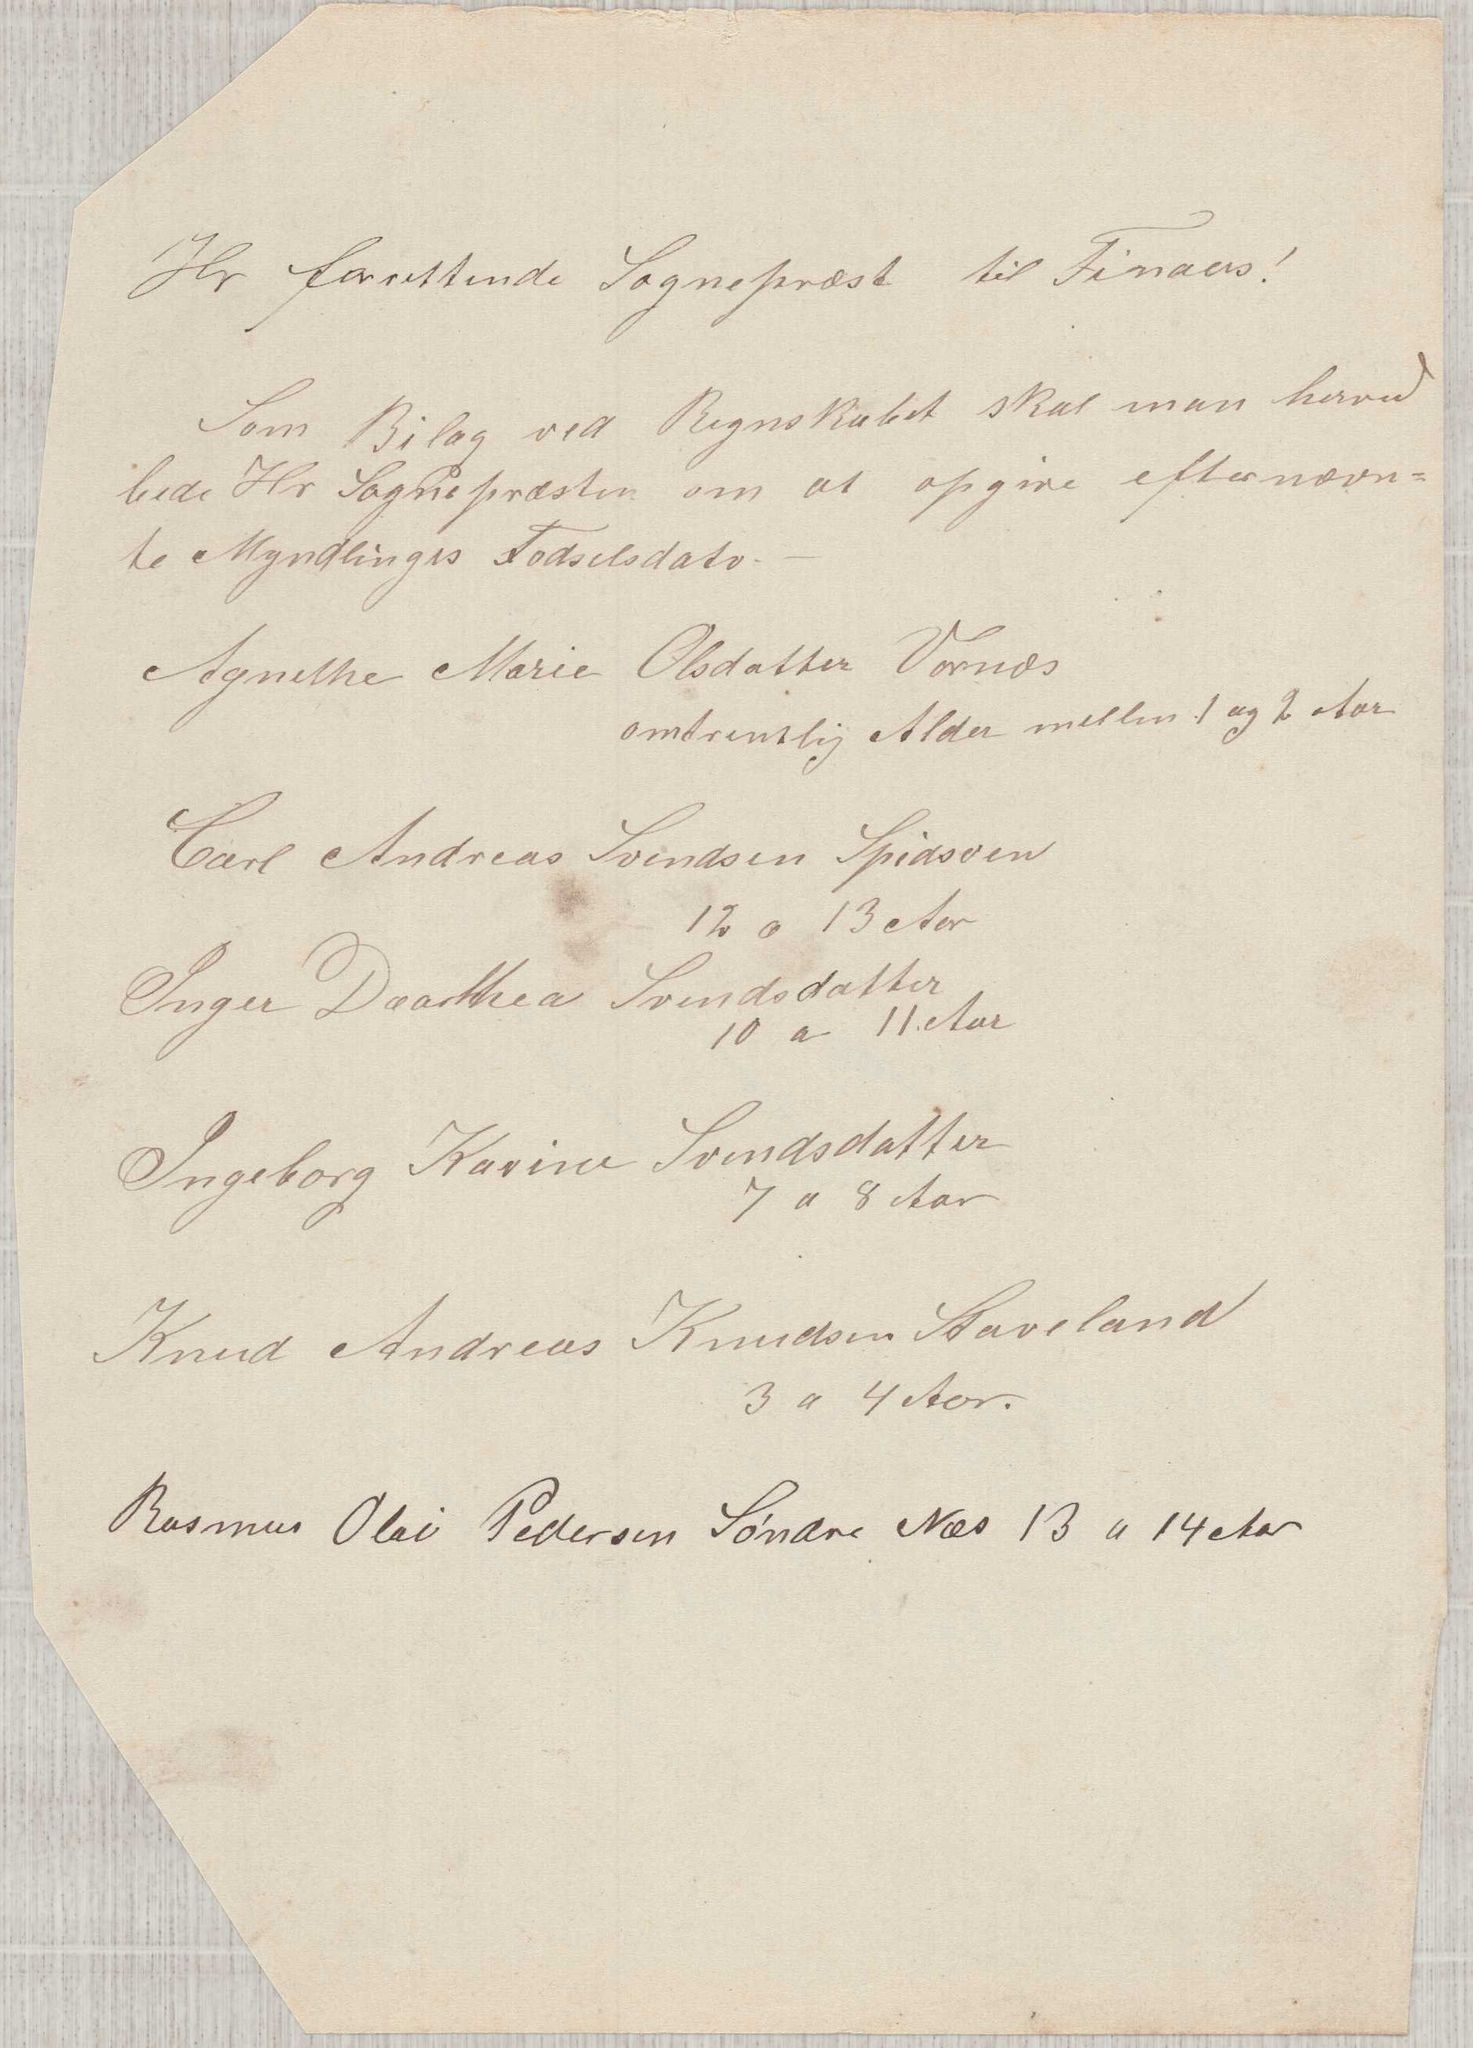 Hr forrettende Sognepræst til Finaas!
Som Bilag ved Regnskabet skal man herved
bede Hr Sognepræsten om at opgive efternævn=
te Myndlinges Fødselsdato. —
Agnethe Marie Olsdatter Vornæs
omtrentlig Alder mellem 1 og 2 Aar
Carl Andreas Svendsen Spidsøen
12 a 13 Aar
Inger Doarthea Svendsdatter
10 a 11 Aar
Ingeborg Karine Svendsdatter
7 a 8 Aar
Knud Andreas Knudsen Staveland
3 a 4 Aar.
Rasmus Olai Pedersen Søndre Næs 13 a 14 Aar